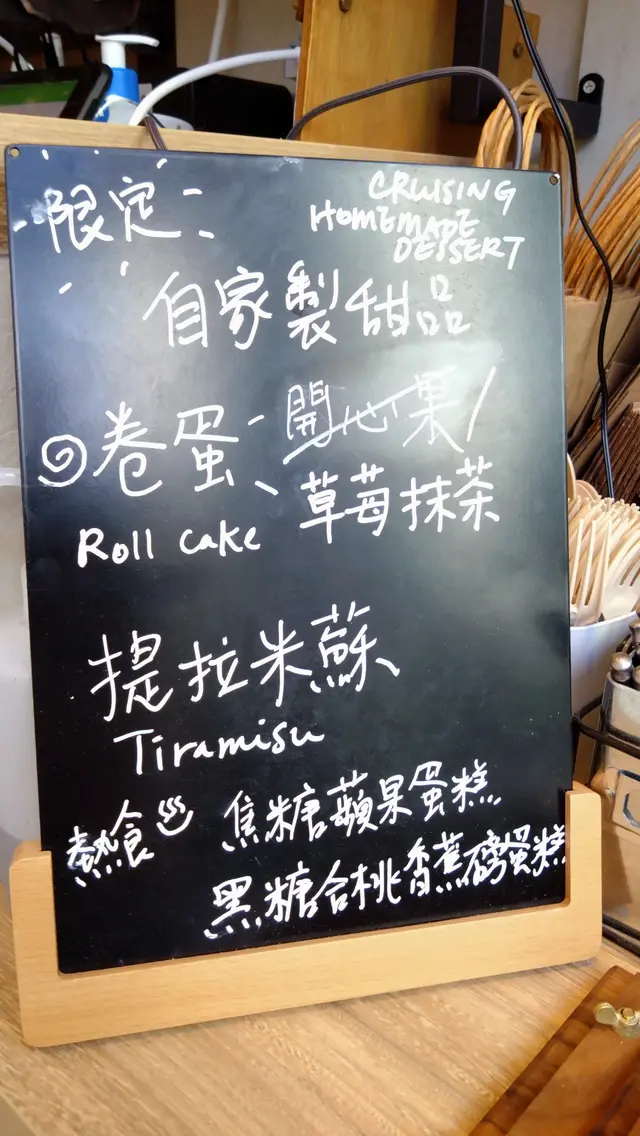 限定：
CRUISING
HOMEMADE
DESSERT
自家製甜品
卷蛋 - 開心果
、草莓抹茶
Roll cake
提拉米蘇
Tiramisu
熱食 焦糖蘋果蛋糕
黑糖合桃香蕉磅蛋糕